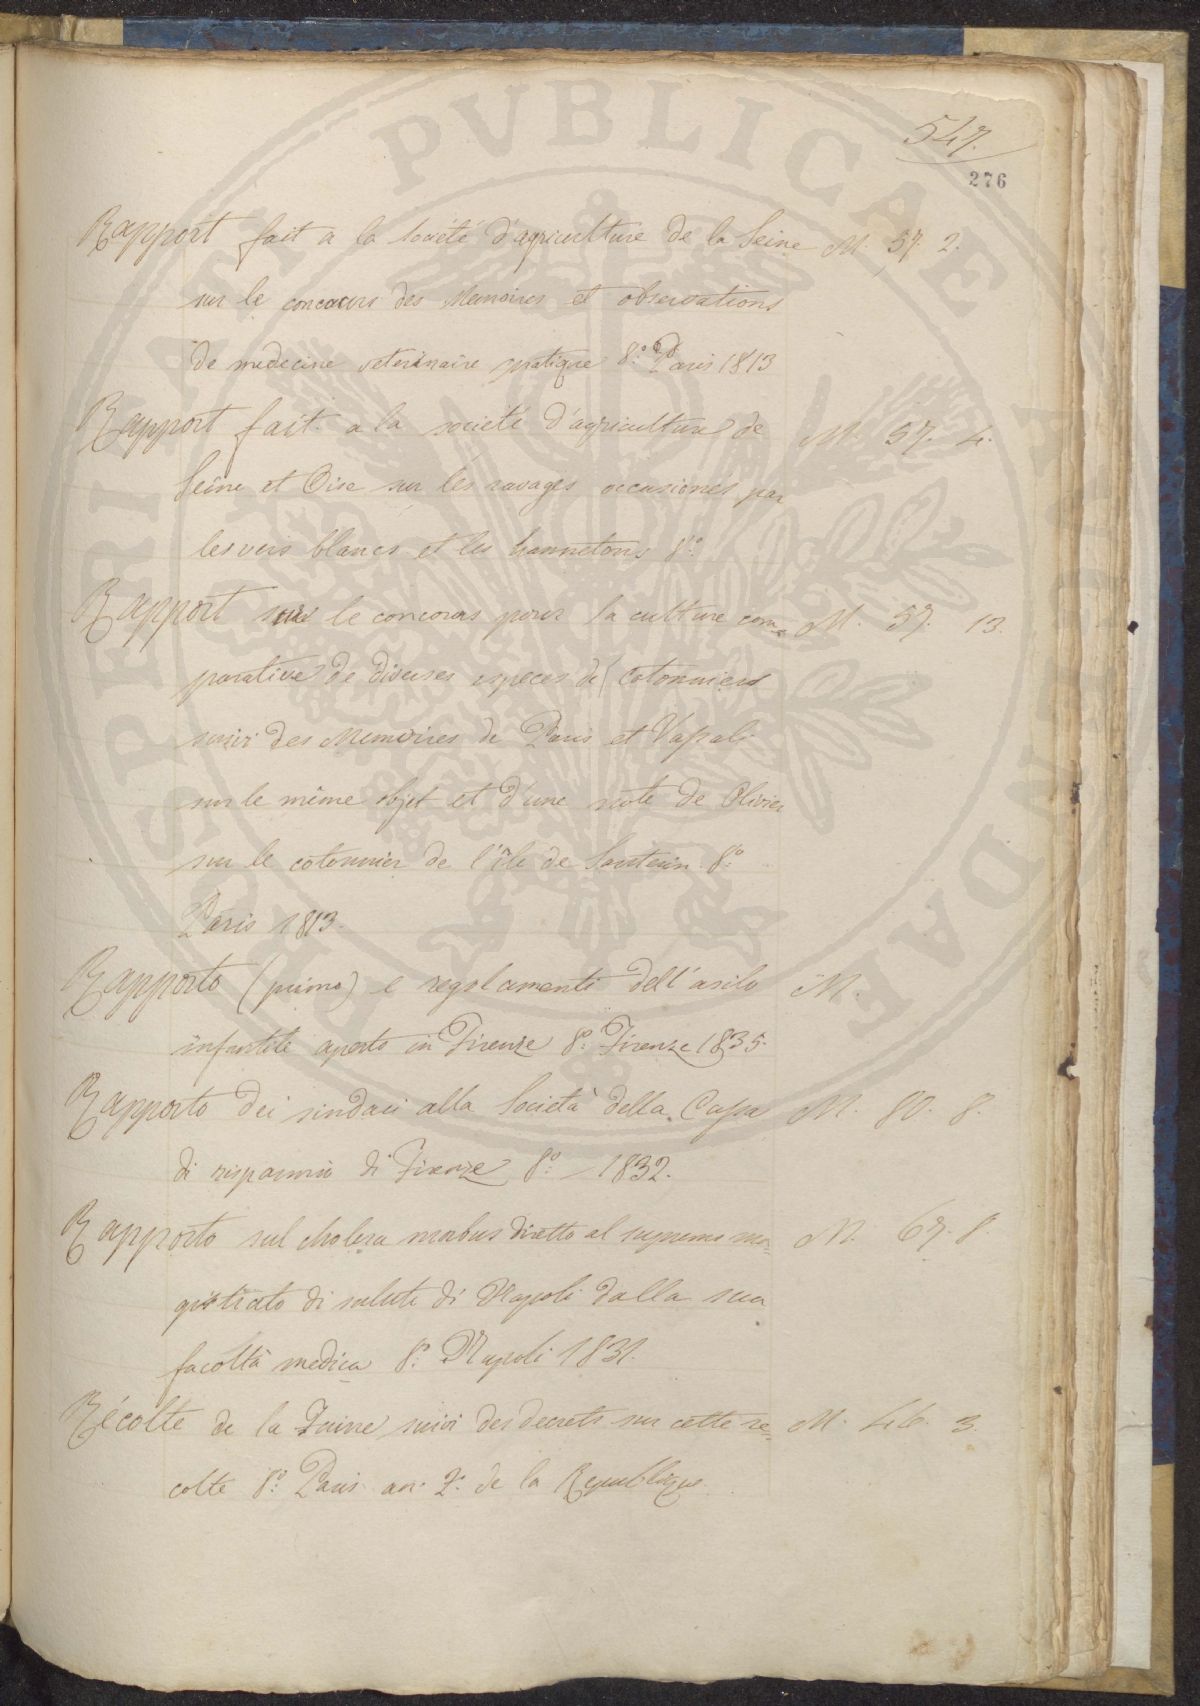 547.
276
Rapport fait a la Societé d'agriculture de la Seine M. 57. 2.
sur le concours des Memoires et observations
de medecine veterinaire pratique 8.º Paris 1813
Rapport fait a la societé d'agriculture de M. 57. 4.
Seine et Oise sur les ravages occasionés par
les vers blancs et les hannetons 8.º
Rapport sur le concours pour la culture com= M. 57. 13.
parative de diverses especes de cotonniers
suivi des Memoires de Paris et
sur le même objet et d'une note de Olivier
sur le cotonnier de l'île de Santorin 8.º
Paris 1813.
Rapporto (primo) e regolamenti dell'asilo M.
infantile aperto in Firenze 8.º Firenze 1835.
Rapporto dei sindaci alla Società della Cassa M. 80. 8.
di risparmio di Firenze 8.º 1832.
Rapporto sul cholera morbus diretto al supremo ma= M. 67. 8.
gistrato di salute di Napoli dalla sua
facoltà medica 8.º Napoli 1831.
Récolte de la suivi des decrets sur cette re= M. 46. 3.
colte 8.º Paris an. 2. de la Republique.
PVBLICAE